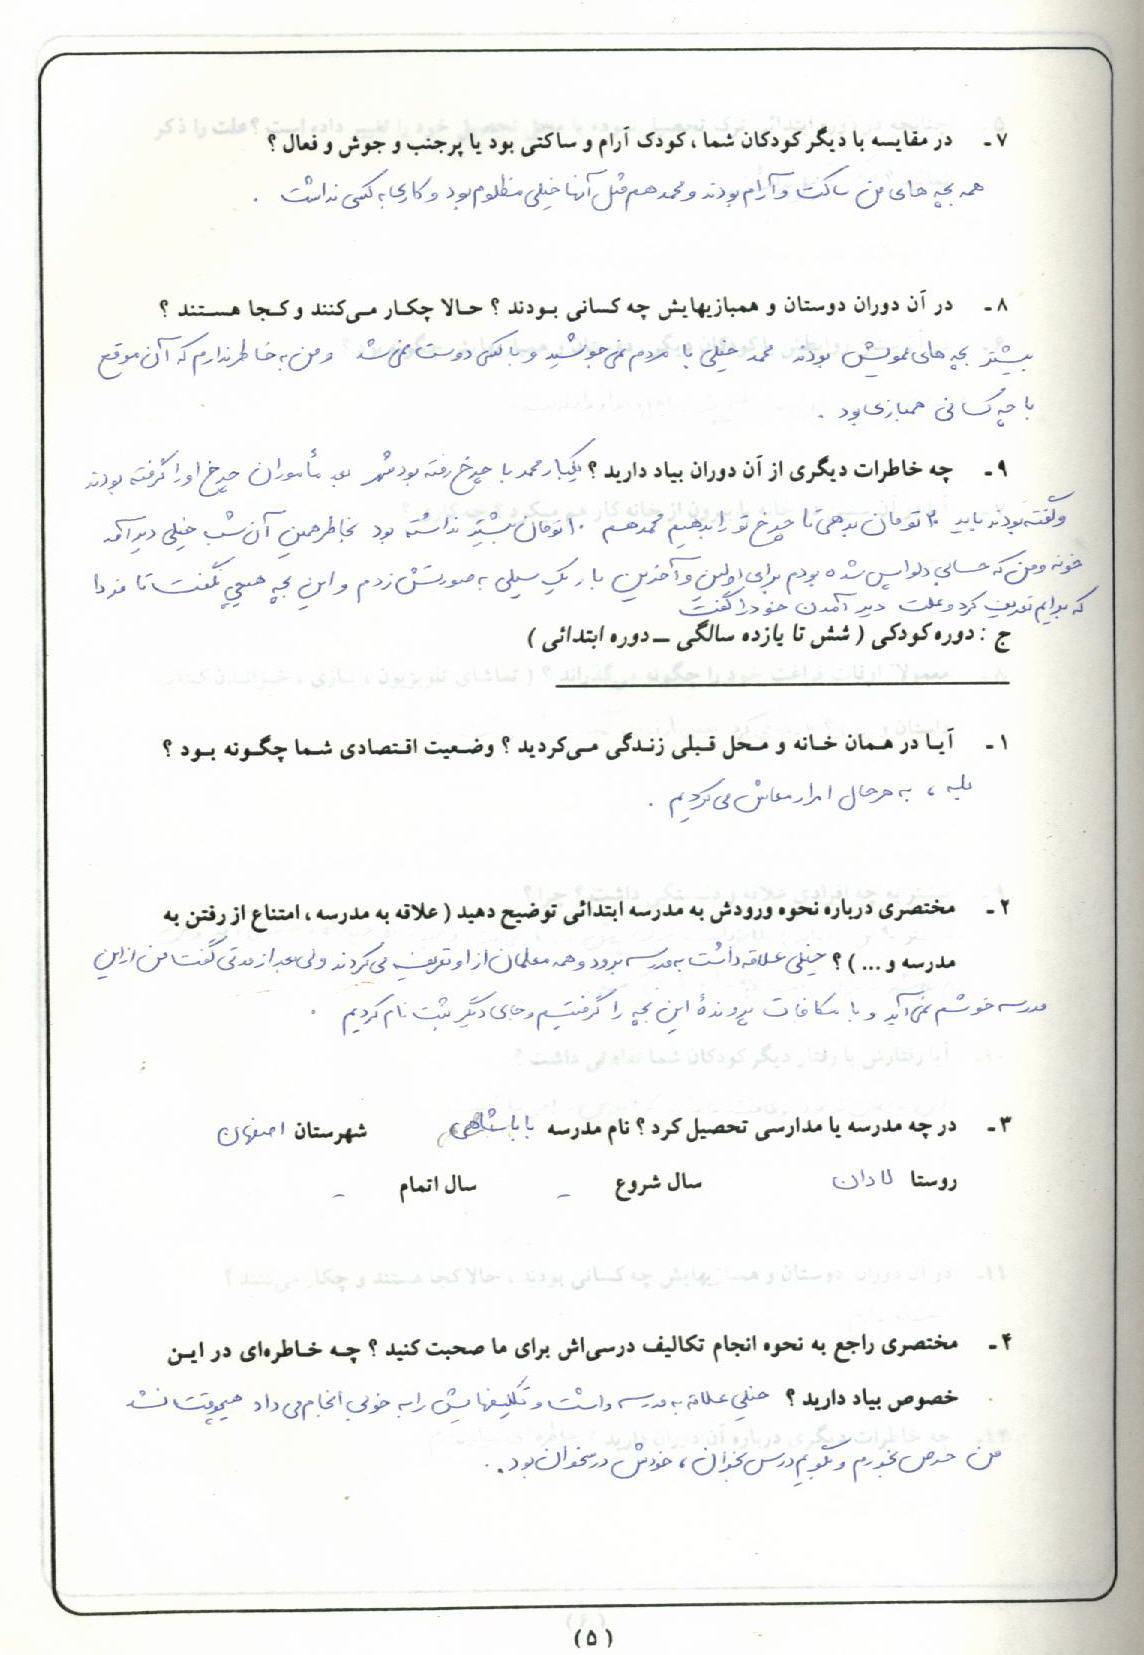 ۷ ـ در مقایسه با دیگر کودکان شما ، کودک آرام و ساکتی بود یا پرجنب و جوش و فعال ؟
همه بچه های من ساکت و آرام بودند و محمد هم مثل آنها خیلی مظلوم بود و کاری به کسی نداشت .
۸ ـ در آن دوران دوستان و همبازیهایش چه کسانی بودند ؟ حالا چکار می‌کنند و کجا هستند ؟
بیشتر بچه های عمویش بودند محمد خیلی با مردم نمی جوشید و با کسی دوست نمی شد و من به خاطر ندارم که آن موقع
با چه کسانی همبازی بود .
۹ ـ چه خاطرات دیگری از آن دوران بیاد دارید ؟ یکبار محمد با چرخ رفته بود شهر بعد مأموران چرخ او را گرفته بودند
و گفته بودند باید ۲۰ تومان بدهی تا چرخ تو را بدهیم محمد هم ۱۰ تومان بیشتر نداشته بود بخاطر همین آن شب خیلی دیر آمد
خونه و من که حسابی دلواپس شده بودم برای اولین و آخرین بار یک سیلی به صورتش زدم و این بچه هیچی نگفت تا فردا
که برایم تعریف کرد و علت دیر آمدن خود را گفت
ج : دوره کودکی ( شش تا یازده سالگی ــ دوره ابتدائی )
۱ ـ آیا در همان خانه و محل قبلی زندگی می‌کردید ؟ وضعیت اقتصادی شما چگونه بود ؟
بله ، به هر حال امرار معاش می کردیم .
۲ ـ مختصری درباره نحوه ورودش به مدرسه ابتدائی توضیح دهید ( علاقه به مدرسه ، امتناع از رفتن به
مدرسه و ... ) ؟ خیلی علاقه داشت به مدرسه برود و همه معلمان از او تعریف می کردند ولی بعد از مدتی گفت من از این
مدرسه خوشم نمی آید و با مکافات پروندهٔ این بچه را گرفتیم و جای دیگر ثبت نام کردیم .
۳ ـ در چه مدرسه یا مدارسی تحصیل کرد ؟ نام مدرسه باباشاهی شهرستان اصفهان
روستا لادان سال شروع ـ سال اتمام ـ
۴ ـ مختصری راجع به نحوه انجام تکالیف درسی‌اش برای ما صحبت کنید ؟ چه خاطره‌ای در این
خصوص بیاد دارید ؟ خیلی علاقه به مدرسه داشت و تکلیفهایش را به خوبی انجام می داد هیچوقت نشد
من حرص بخورم و بگویم درس بخوان ، خودش درسخوان بود .
( ۵ )